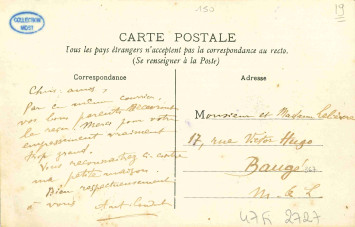 COLLECTION
150
19
CARTE POSTALE
Tous les pays étrangers n'acceptent pas la correspondance au recto.
(Se renseigner à la Poste)
Correspondance
Adresse
Chers amis,
Par ce même courrier,
vos bons parents
la reçu (Merci pour votre
empressement vraiment
trop grand.
Vous reconnaîtrez ci-contre
ma petite maison.
Bien respectueusement
à vous.
Monsieur et Madame
17, rue Victor Hugo
Baugé
M. & L.
47 Fi 2727